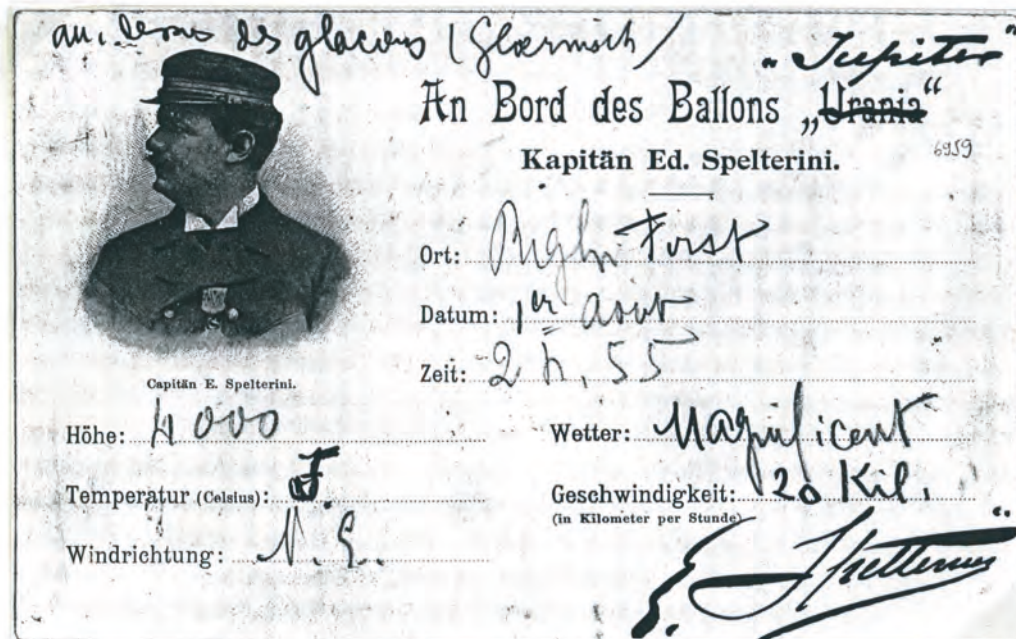 au dessus des glaciers (Glærnisch)
"Jupiter"
An Bord des Ballons „Urania“
Kapitän Ed. Spelterini.
6959
Ort: First
Datum: 1er Aout
Zeit: 2 h. 55
Capitän E. Spelterini.
Höhe: 4000
Wetter: Magnificent
Temperatur (Celsius):
Geschwindigkeit: 20 Kil.
(in Kilometer per Stunde)
Windrichtung: N. E.
E. Spelterini